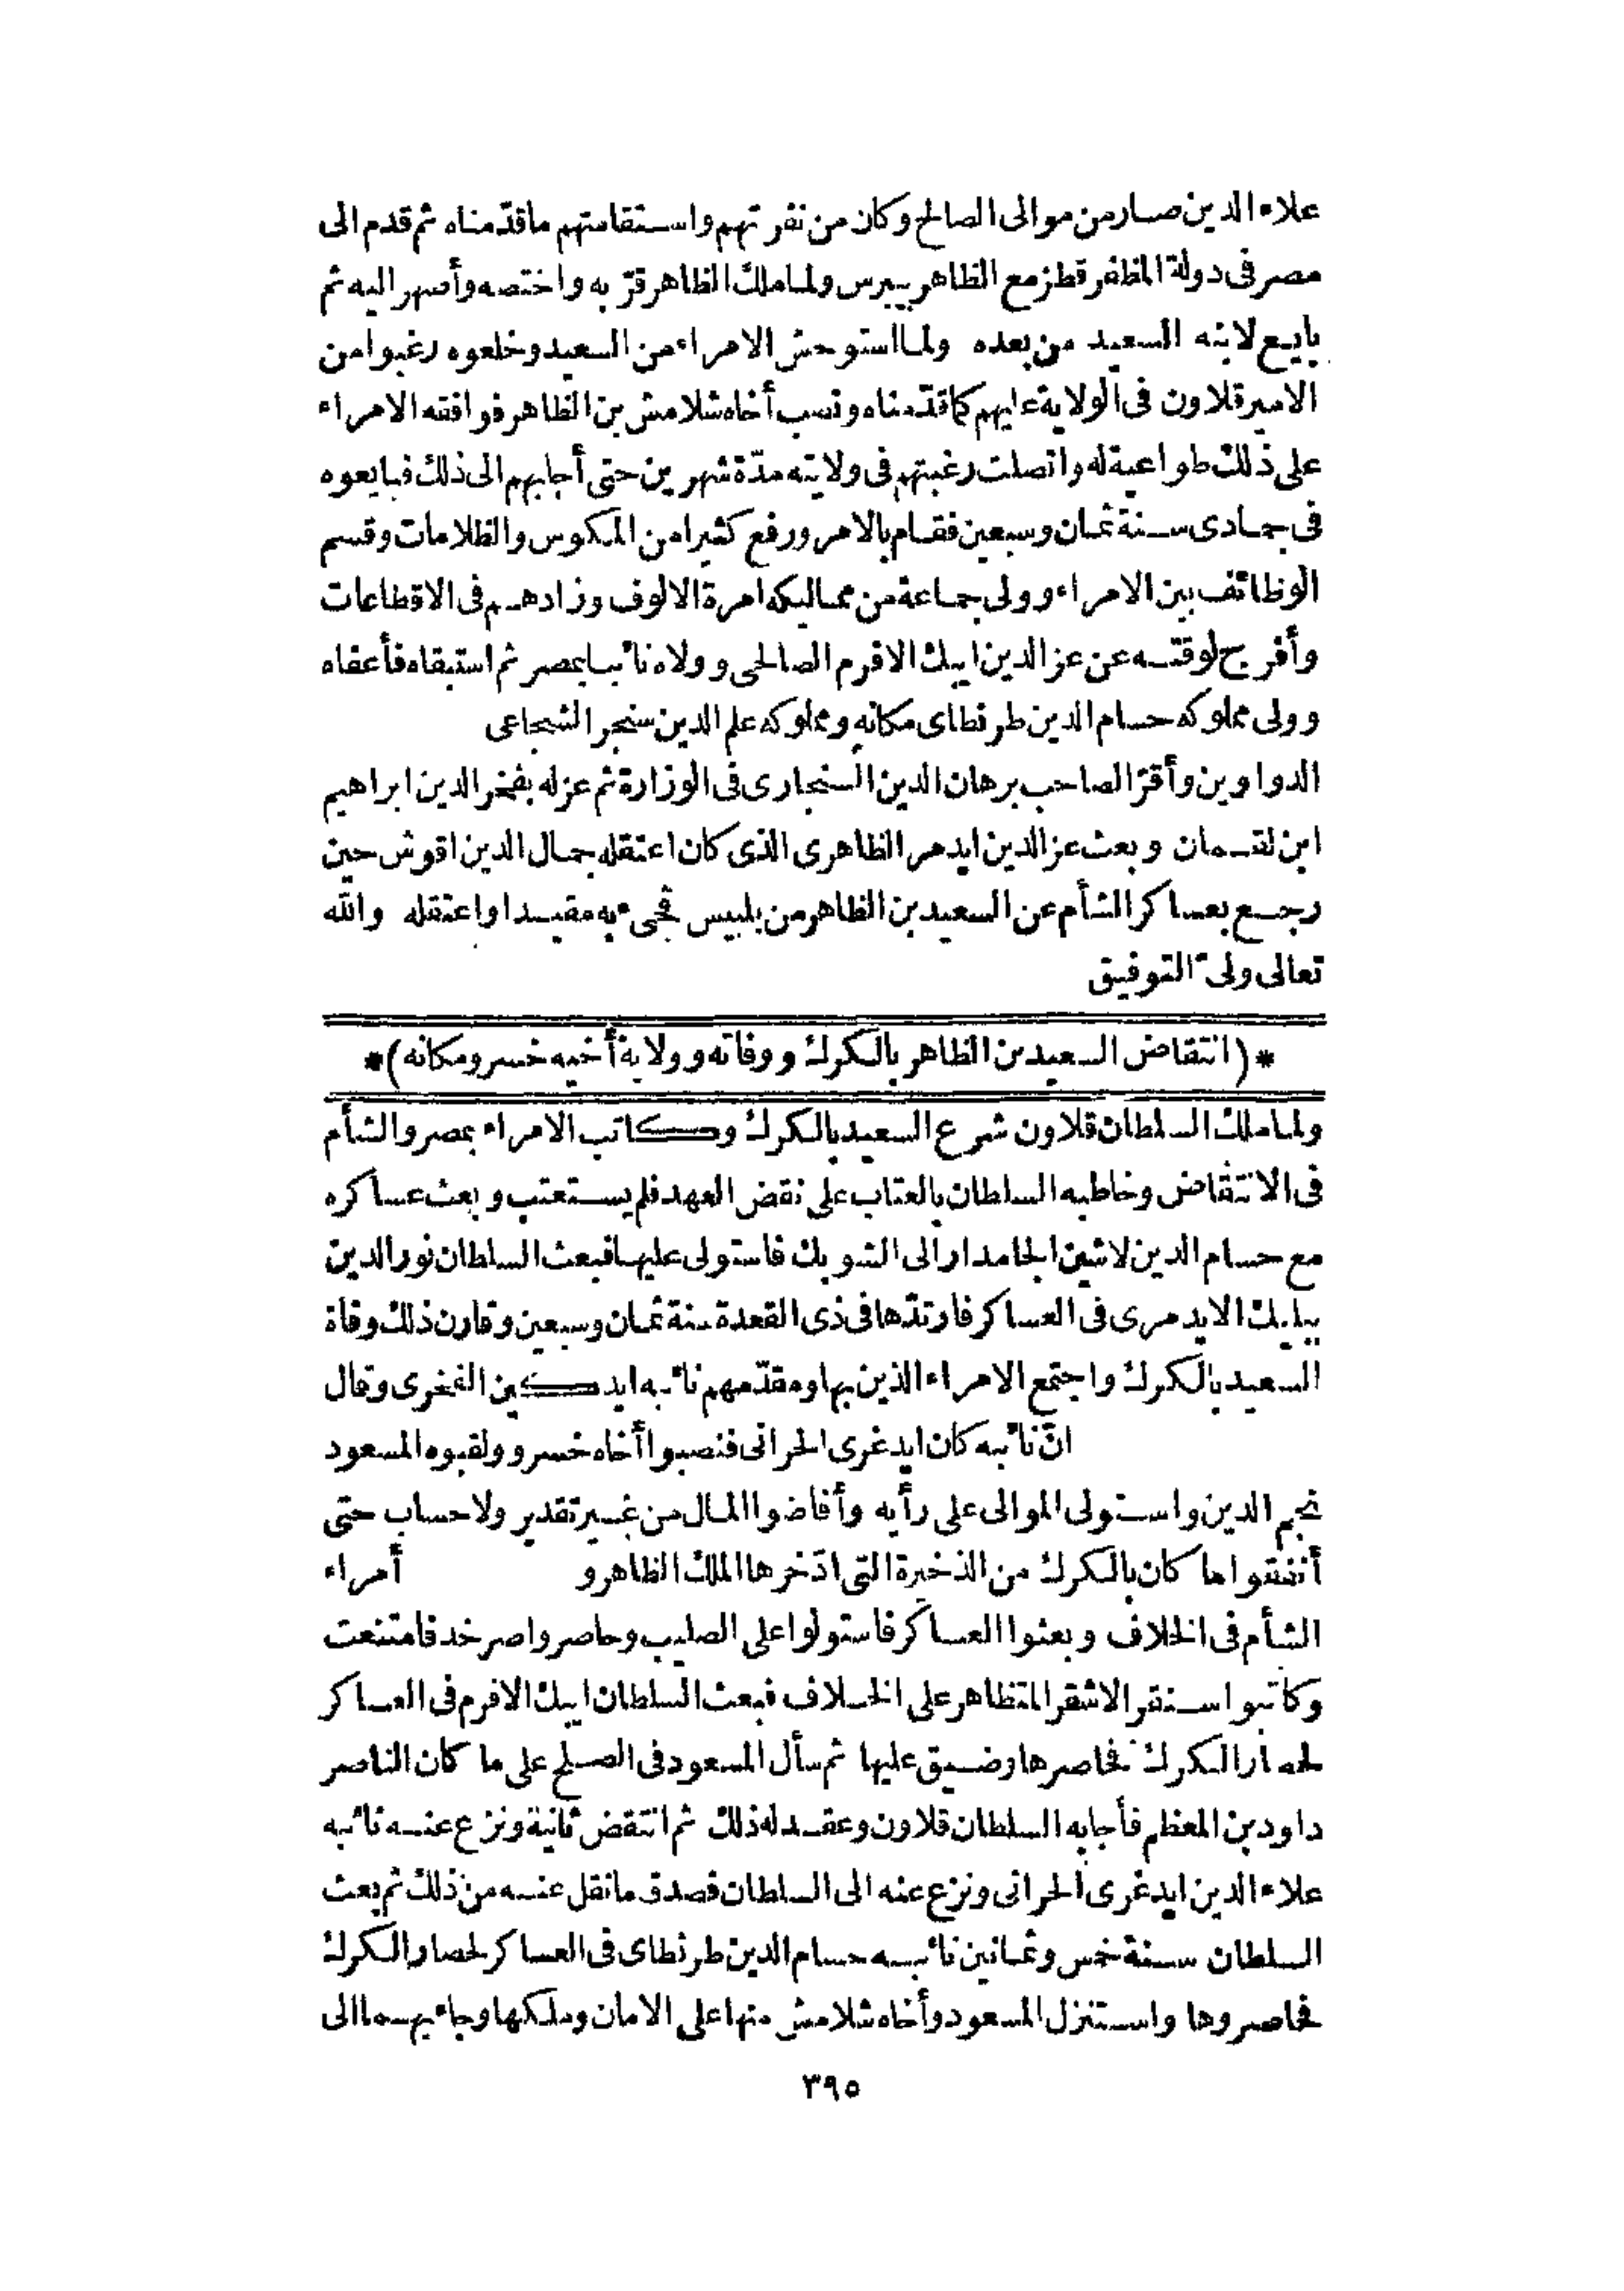 علاء الدين صار من موالى الصالح وكان من نفرتهم واستقامتهم ما قدّمناه ثم قدم الى
مصر فى دولة المظفر قطز مع الظاهر بيبرس ولما ملك الظاهر قرّبه واختصه وأصهر اليه ثم
بايع لابنه السعيد من بعده ولما استوحش الامراء من السعيد وخلعوه رغبوا من
الامير قلاون فى الولاية عليهم كما قدّمناه ونصب أخاه شلامش بن الظاهر فوافقه الامراء
على ذلك طواعية له واتصلت رغبتهم فى ولايته مدّة شهرين حتى أجابهم الى ذلك فبايعوه
فى جمادى سنة ثمان وسبعين فقام بالامر ورفع كثيرا من المكوس والظلامات وقسم
الوظائف بين الامراء وولى جماعة من مماليكه امرة الالوف وزادهم فى الاقطاعات
وأفرج لوقته عن عز الدين ايبك الافرم الصالحى وولاه نائبا بمصر ثم استبقاه فأعفاه
وولى مملوكه حسام الدين طرنطاى مكانه ومملوكه علم الدين سنجر الشجاعى
الدواوين وأقرّ الصاحب برهان الدين السنجارى فى الوزارة ثم عزله بفخر الدين ابراهيم
ابن لقمان وبعث عز الدين ايدمر الظاهرى الذى كان اعتقله جمال الدين اقوش حين
رجع بعساكر الشأم عن السعيد بن الظاهر من بلبيس فجىء به مقيدا واعتقله والله
تعالى ولىّ التوفيق
* (انتقاض السعيد بن الظاهر بالكرك ووفاته وولاية أخيه خسرو مكانه) *
ولما ملك السلطان قلاون شرع السعيد بالكرك وكاتب الامراء بمصر والشأم
فى الانتقاض وخاطبه السلطان بالعتاب على نقض العهد فلم يستعتب وبعث عساكره
مع حسام الدين لاشين الجامدار الى الشوبك فاستولى عليها فبعث السلطان نور الدين
بيليك الايدمرى فى العساكر فارتدّها فى ذى القعدة سنة ثمان وسبعين وقارن ذلك وفاة
السعيد بالكرك واجتمع الامراء الذين بها ومقدّمهم نائبه ايدكين الفخرى وقال
انّ نائبه كان ايدغرى الحرانى فنصبوا أخاه خسرو ولقبوه المسعود
نجم الدين واستولى الموالى على رأيه وأفاضوا المال من غير تقدير ولا حساب حتى
أنفقوا ما كان بالكرك من الذخيرة التى ادّخرها الملك الظاهر و أمراء
الشأم فى الخلاف وبعثوا العساكر فاستولوا على الصليب وحاصروا صرخد فامتنعت
وكاتبوا سنقر الاشقر المتظاهر على الخلاف فبعث السلطان ايبك الافرم فى العساكر
لحصار الكرك فحاصرها وضيق عليها ثم سأل المسعود فى الصلح على ما كان الناصر
داود بن المعظم فأجابه السلطان قلاون وعقد له ذلك ثم انتقض ثانية ونزع عنه نائبه
علاء الدين ايدغرى الحرانى ونزع عنه الى السلطان فصدق ما نقل عنه من ذلك ثم بعث
السلطان سنة خمس وثمانين نائبه حسام الدين طرنطاى فى العساكر لحصار الكرك
فحاصروها واستنزل المسعود وأخاه شلامش منها على الامان وملكها وجاء بهما الى
٣٩٥